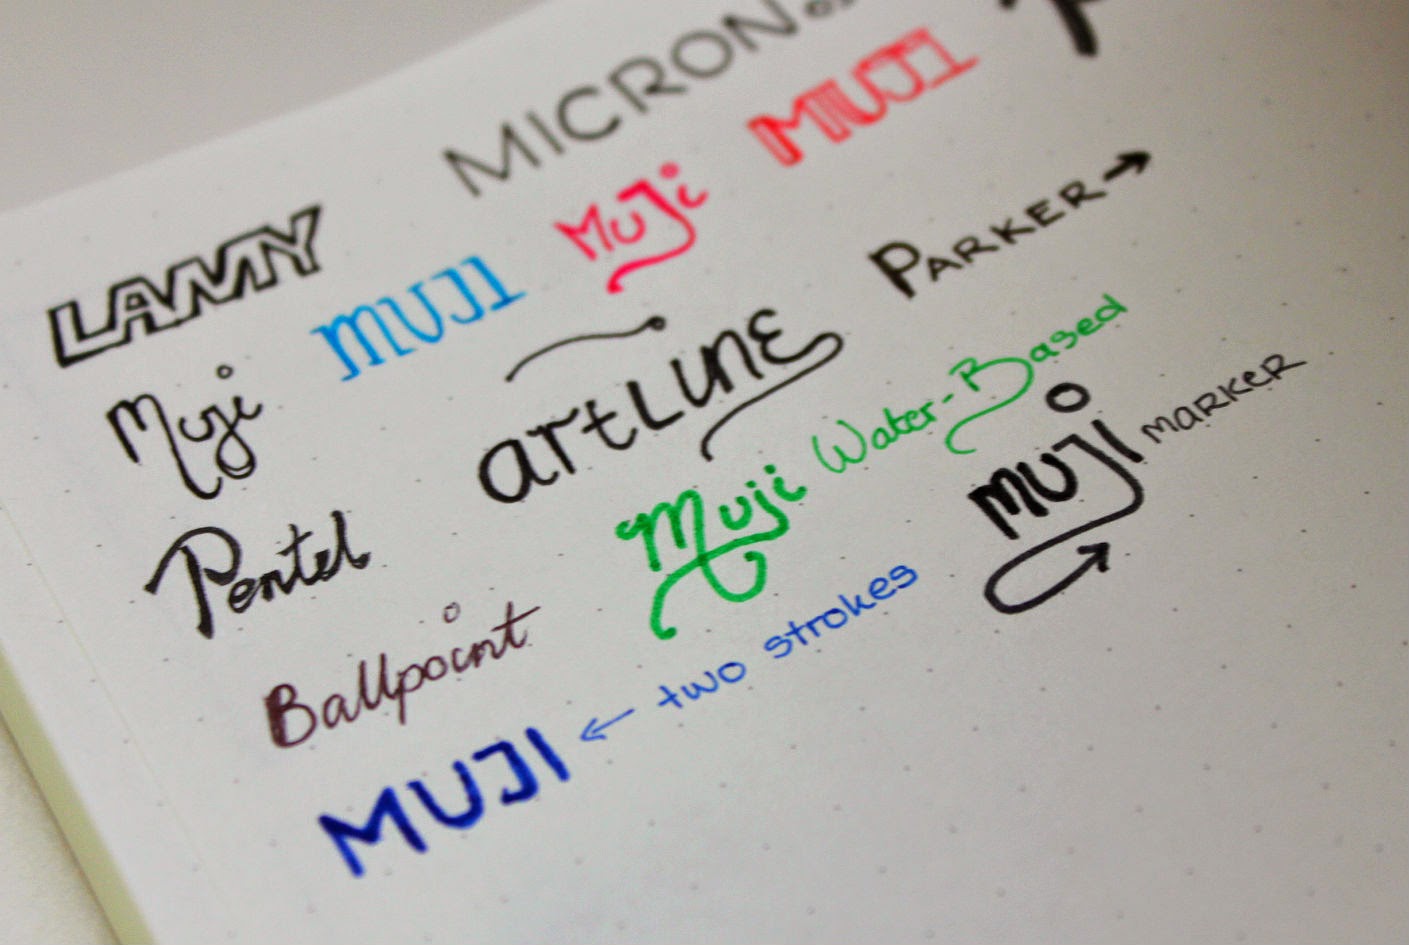 MICRON
LAMY
MUJI
Muji
MUJI
Muji
artLINE
PARKER →
Pentel
Muji Water-Based
muji MARKER
Ballpoint
MUJI ← two strokes